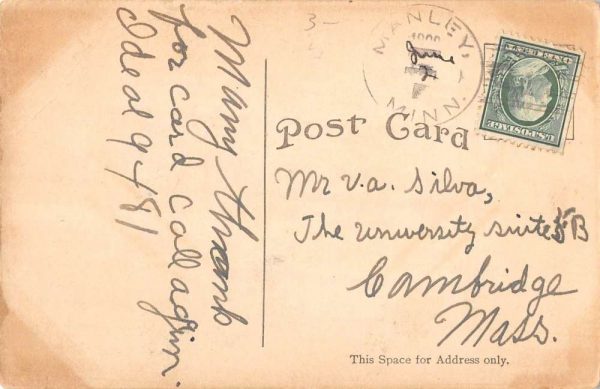 Many thanks
for card call again.
Ideal 9481
3-
MANLEY,
1909
June
2
MINN.
U.S. POSTAGE
ONE CENT
Post Card
Mr V.A. Silva,
The University suite 5B
Cambridge
Mass.
This Space for Address only.